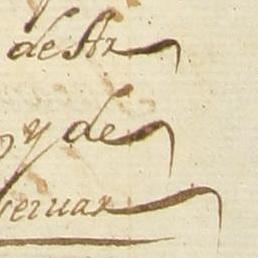 de Ar
y de
seruar